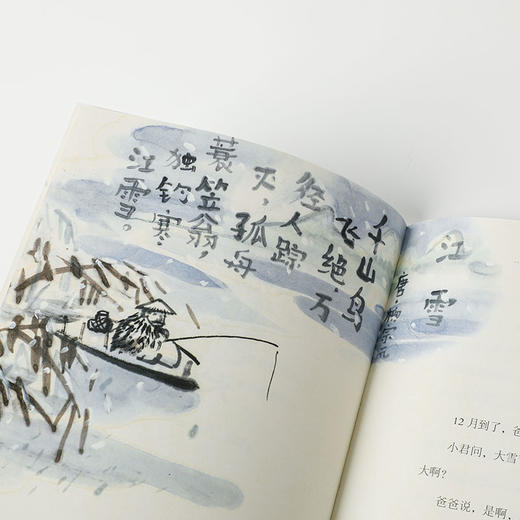 千山鸟
飞绝，万
径人踪
灭，孤舟
蓑笠翁，
独钓寒
江雪。
江雪
唐 柳宗元
12 月到了，爸
小君问，大雪
大啊？
爸爸说，是啊，